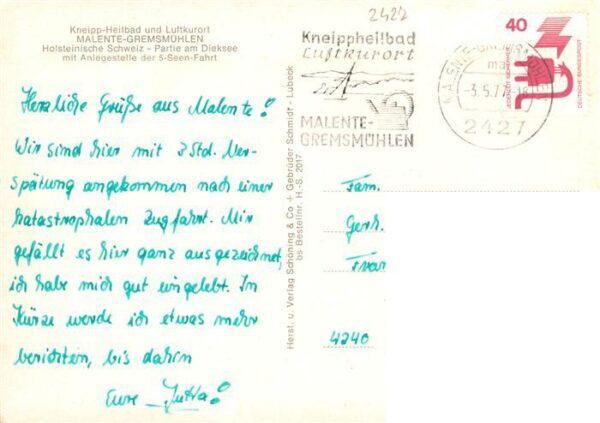 Kneipp-Heilbad und Luftkurort
MALENTE-GREMSMÜHLEN
Holsteinische Schweiz - Partie am Dieksee
mit Anlegestelle der 5-Seen-Fahrt
Herzliche Grüße aus Malente!
Wir sind hier mit 3 Std. Ver-
spätung angekommen nach einer
katastrophalen Zugfahrt. Mir
gefällt es hier ganz ausgezeichnet,
ich habe mich gut eingelebt. In
Kürze werde ich etwas mehr
berichten, bis dahin
Eure Jutta!
Herst. u. Verlag Schöning & Co + Gebrüder Schmidt - Lübeck
bs Bestellnr. H.-S. 2017
2427
Kneippheilbad
Luftkurort
MALENTE-
GREMSMÜHLEN
MALENTE-GREMSMÜHLEN
ma
-3.5.77
2427
40
JEDERZEIT SICHERHEIT
DEUTSCHE BUNDESPOST
Fam.
Gerh.
4240